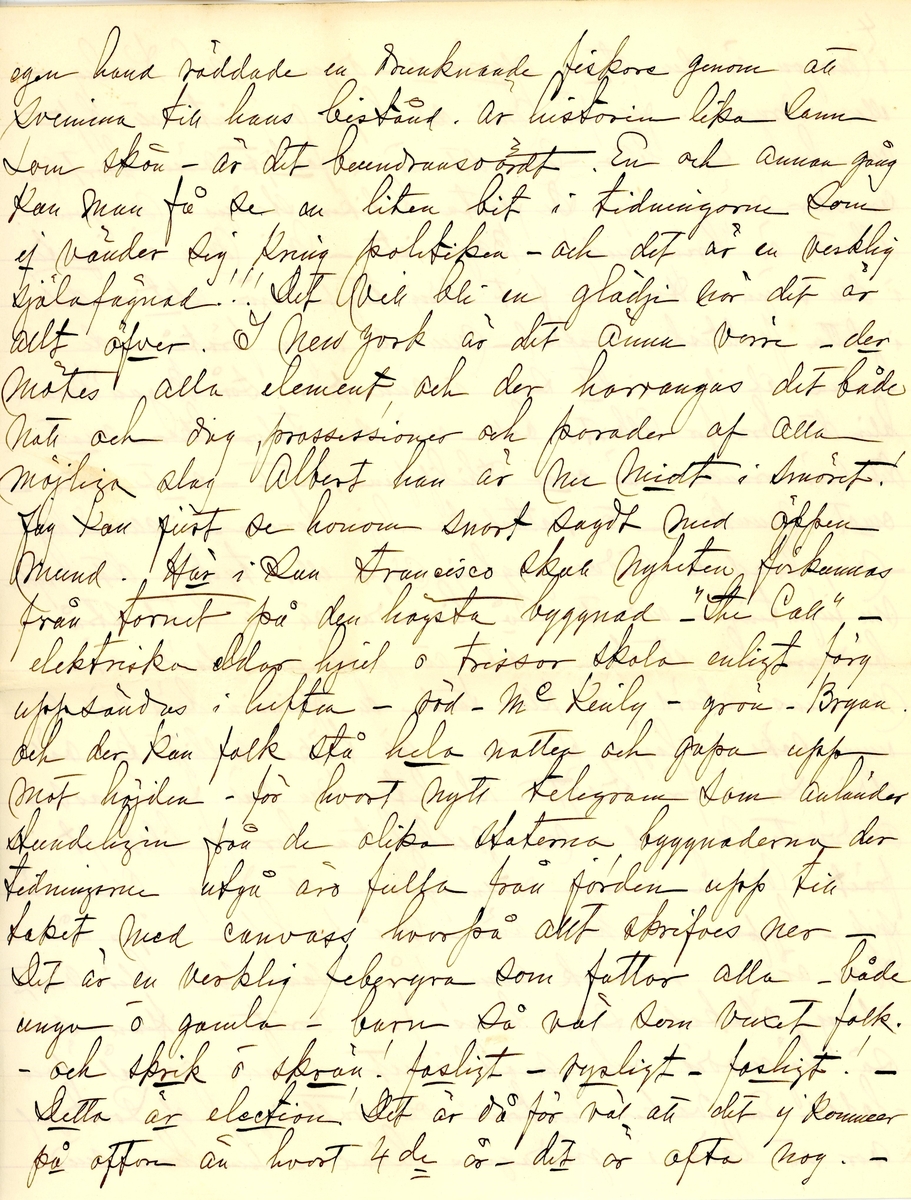 egen hand räddade en drunknande fiskare genom att
svimma till hans bistånd. Är historien lika sann
som skön – är det beundransvärdt. En och annan gång
kan man få se en liten bit i tidningarne som
ej vänder sig kring politiken – och det är en verklig
själafägnad!!! Det vill bli en glädje när det är
allt öfver. I New York är det ännu värre – der
mötes alla element och der harrangas det både
natt och dag, prossessioner och parader af alla
möjliga slag Albert han är nu midt i smöret!
Jag kan just se honom snart sagdt med öppen
mund. Här i San Francisco skall nyheten förkunnas
från tornet på den högsta byggnad – "The Call" –
elektriska eldar hjul o trissor skola enligt färg
uppsändas i luften – röd – McKinly – grön – Bryan.
och der kan folk stå hela natten och gapa upp
mot höjden – för hvart nytt telegram som anländer
stundeligen från de olika staterna, byggnaderna der
tidningarne utgå äro fulla från jorden upp till
taket med canvass hvarpå allt skrifves ner –
Det är en verklig feberyra som fattar alla – både
unga o gamla – barn så väl som vuxet folk.
– och skrik o skrän! fasligt – rysligt – fasligt! –
Detta är election! Det är då för väl att det ej kommer
på oftare än hvart 4de år – det är ofta nog. –